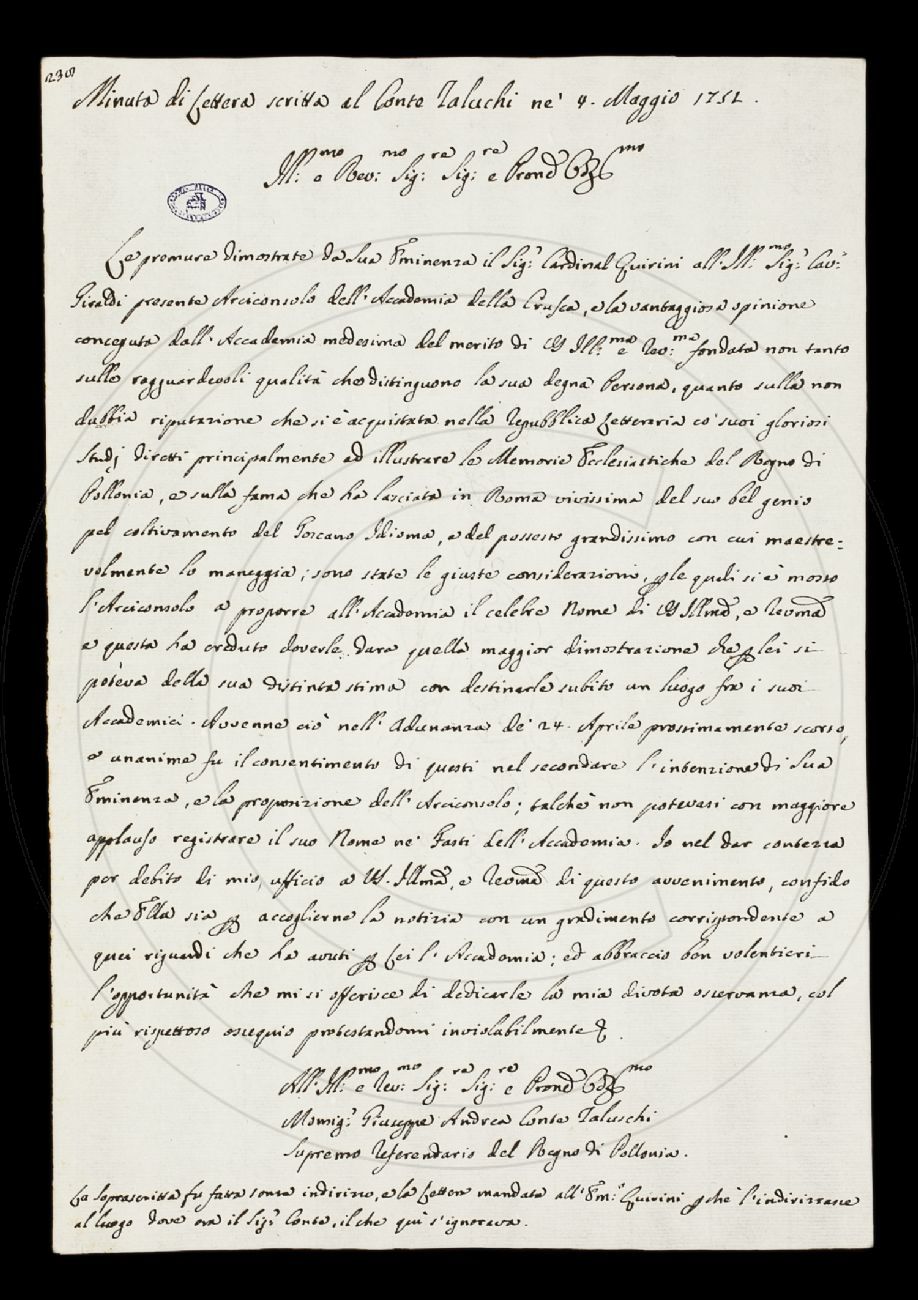 230
Minuta di Lettera scritta al Conte Taluchi ne' 4. Maggio 1752.
Ill:mo e Rev:mo Sig:re Sig:re e Prond Colmo
Le premure dimostrate da Sua Eminenza il Sig:r Cardinal Quirini all'Ill:mo Sig:r Cav:r
Giraldi presente Arciconsolo dell'Accademia della Crusca, e la vantaggiosa opinione
conceputa dall'Accademia medesima del merito di VS Ill:ma e Rev:ma fondata non tanto
sulle ragguardevoli qualità che distinguono la sua degna Persona, quanto sulla non
dubbia riputazione che si è acquistata nella Repubblica Letteraria co' suoi gloriosi
Studj diretti principalmente ad illustrare le Memorie Ecclesiastiche del Regno di
Pollonia, e sulla fama che ha lasciata in Roma vivissima del suo bel genio
pel coltivamento del Toscano Idioma, e del possesso grandissimo con cui maestre=
volmente lo maneggia; sono state le giuste considerazioni, p le quali si è mosso
l'Arciconsolo a proporre all'Accademia il celebre Nome di VS Illma, e Revma
e questa ha creduto doverle dare quella maggior dimostrazione che p lei si
poteva della sua distinta stima con destinarle subito un luogo fra i suoi
Accademici. Avvenne ciò nell'Adunanza de' 24. Aprile prossimamente scorso,
e unanime fu il consentimento di questi nel secondare l'intenzione di Sua
Eminenza, e la proposizione dell'Arciconsolo; talchè non potevasi con maggiore
applauso registrare il suo Nome ne' Fasti dell'Accademia. Io nel dar contezza
per debito di mio ufficio a VS. Illma, e Revma di questo avvenimento, confido
che Ella sia p accoglierne la notizia con un gradimento corrispondente a
quei riguardi che ha avuti p Lei l'Accademia; ed abbraccio ben volentieri
l'opportunità che mi si offerisce di dedicarle la mia divota osservanza, col
più rispettoso ossequio protestandomi inviolabilmente &.
All'Ill:mo e Rev:mo Sig:re Sig:re e Prond Colmo
Monsig:r Giuseppe Andrea Conte Taluschi
Supremo Referendario del Regno di Pollonia.
La soprascritta fu fatta senza indirizzo, e la Lettera mandata all'Em:o Quirini p chè l'indirizzasse
al luogo dove era il Sig:r Conte, il che quì s'ignorava.